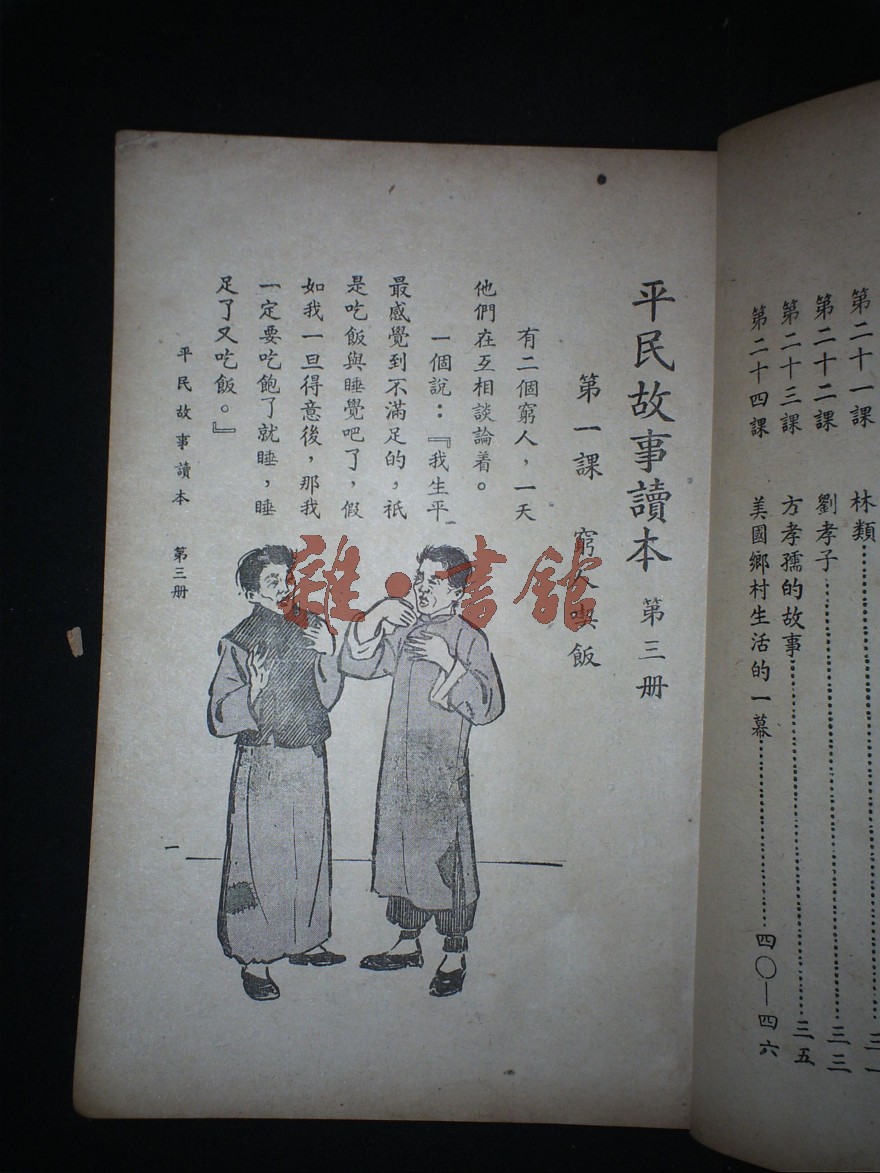 第二十一課 林類………三一
第二十二課 劉孝子………三三
第二十三課 方孝孺的故事………三五
第二十四課 美國鄉村生活的一幕………四〇—四六
平民故事讀本 第三册
第一課 窮人喫飯
有二個窮人，一天
他們在互相談論着。
一個說：『我生平
最感覺到不滿足的，祇
是吃飯與睡覺吧了，假
如我一旦得意後，那我
一定要吃飽了就睡，睡
足了又吃飯。』
平民故事讀本 第三册
一
雜·書館